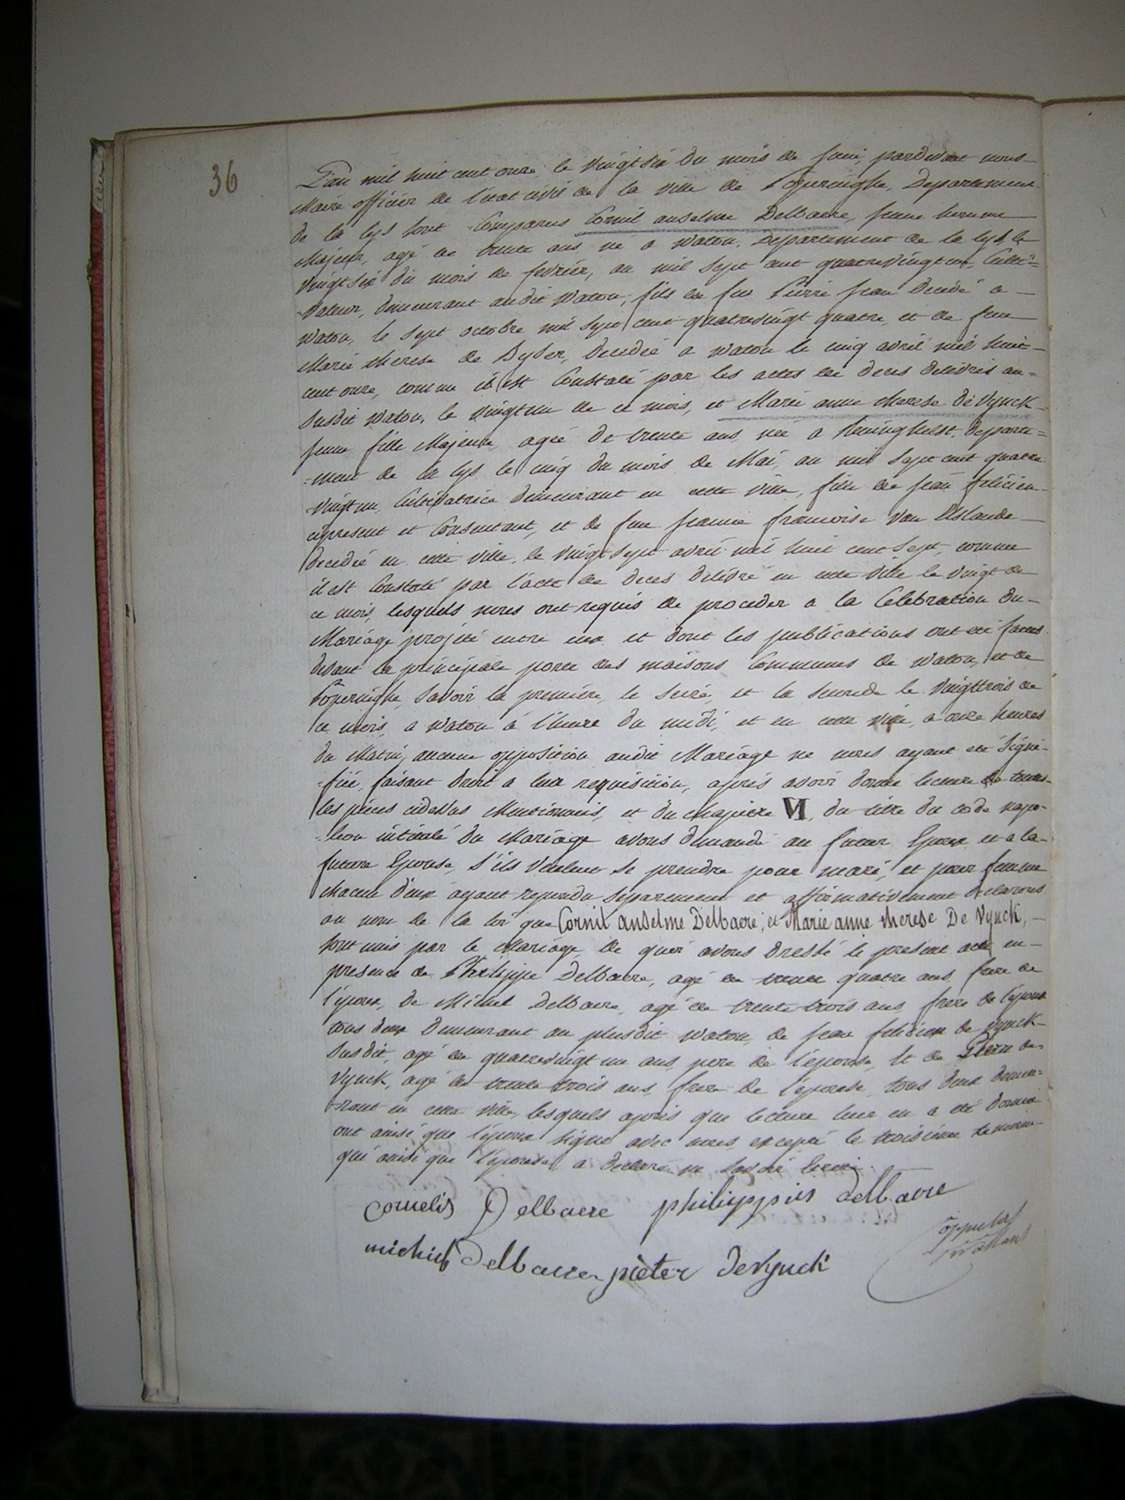 36
L'an mil huit cent onze, le vingt six du mois de juin, pardevant nous
Maire officier de l'etat civil de la ville de Poperinghe, Departement
de la Lys sont Comparus Cornil anselme Delbaere, jeune homme
Majeur, agé de trente ans né a Watou, Departement de la Lys le
vingt six du mois de fevrier, an mil sept cent quatrevingt un, Culti=
vateur, demeurant audit Watou, fils de feu Pierre Jean decedé a
Watou, le sept octobre mil sept cent quatrevingt quatre, et de feue
Marie therese de Dyser, decedée a Watou le cinq avril mil huit
cent onze, comme il est Constaté par les actes de deces delivrés au=
susdit Watou, le vingt un de ce mois, et Marie anne therese de Vynck
jeune fille Majeure, agée de trente ans, née a Reninghelst, departe=
=ment de la Lys le cinq du mois de Mai, an mil sept cent quatre
vingt un, Cultivatrice demeurant en cette ville, fille de Jean felicien
cipresent et Consentant, et de feue francoise Van Elslande
decedée en cette ville, le vingt sept avril mil huit cent sept, comme
il est Constaté par l'acte de deces delivré en cette ville le vingt de
ce mois, lesquels nous ont requis de proceder a la Celebration du
Mariage projeté entre eux et dont les publications ont été faites
devant la principale porte des maisons Communes de Watou, et de
Poperinghe, savoir la premiere, le seize, et la seconde le vingttrois de
ce mois, a Watou à l'heure du midi, et en cette ville, a onze heures
du Matin, aucune opposition audit Mariage ne nous ayant été signi=
=fiée, faisant droit a leur requisition, après avoir donné lecture de toutes
les pieces cidessus Mentionnées, et du chapitre VI, du titre du code napo=
=leon intitulé du Mariage avons demandé au futur Epoux et a la
future Epouse, s'ils veulent se prendre pour mari, et pour femme
chacun d'eux ayant repondu separement et affirmativement declarons
au nom de la loi que Cornil anselme Delbaere, et Marie anne therese De Vynck,
sont unis par le Mariage de quoi avons dressé le present acte en
presence de Philippe Delbaere, agé de trente quatre ans, frere de
l'epoux, de Michel Delbaere, agé de trente trois ans, frere de l'epoux
tous deux demeurant au plusdit Watou, de Jean felicien de Vynck
susdit, agé de quatrevingt un ans, pere de l'epouse, et de Pierre de
Vynck, agé de trente trois ans, frere de l'epouse, tous deux demeu=
=rant en cette ville, lesquels après que lecture leur en a été donnée
ont ainsi que l'epoux signé avec nous, excepté le troisieme temoin
qui ainsi que l'epouse a declaré ne savoir ecrire
cornelis Delbaere philippus delbaere
michiel delbaere pieter devynck